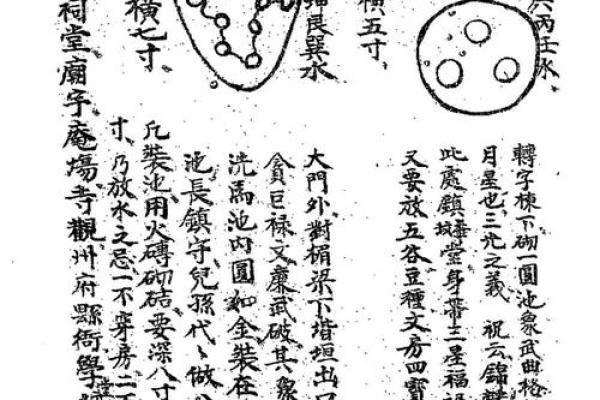 丙壬水
轉字棟下砌一圓池象武曲格
月星也三光之義 祝云錦
此處鎮華堂身帶三星福
又要放五谷豆種文房四寶
橫五寸
艮巽水
大門外對楣梁下堦垣出口
貪巨禄文廉武破其象
洗馬池內圓如金裝在
池長鎮守兒孫代〻做
橫七寸
凡裝池用火磚砌結要深八寸
寸乃放水之忌一不穿房二不
祠堂廟宇庵塲寺觀州府縣衙學